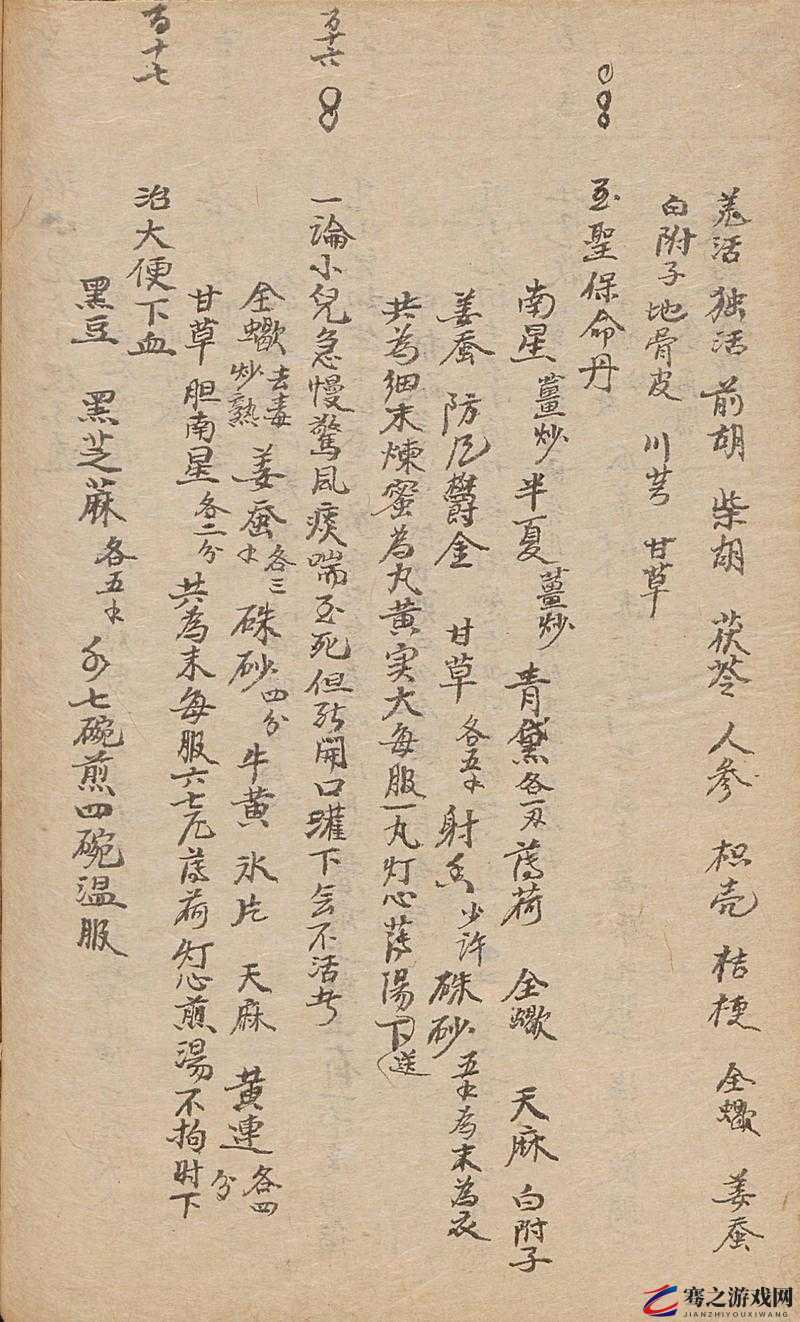 羗活 独活 前胡 柴胡 茯苓 人参 枳壳 桔梗 全蠍 姜蚕
白附子 地骨皮 川芎 甘草
至聖保命丹
南星薑炒 半夏薑炒 青黛各一刄 薄荷 全蠍 天麻 白附子
姜蚕 防風 欝金 甘草各五 射香少许 硃砂五 為末為衣
共為細末煉蜜為丸黄实大每服一丸灯心薄湯下送
百十六
一論小兒急慢驚風痰喘至死但能開口灌下無不活者
全蠍去毒炒熟 姜蚕各三 硃砂四分 牛黄 氷片 天麻 黄連各四分
甘草 胆南星各二分 共為末每服六七厘薄荷灯心煎湯不拘时下
百十七
治大便下血
黑豆 黑芝蔴各五 水七碗煎四碗温服
骞之游戏网
JIANZHIYOUXIWANG